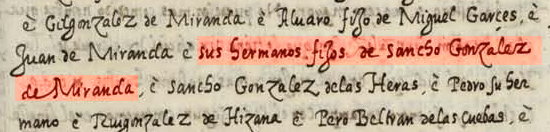 è Gilgonzalez de Miranda, è Alvaro fijo de Miguel Garces, è
Juan de Miranda è sus hermanos fijos de sancho Gonzalez
de Miranda, è sancho Gonzalez delas Heras, è Pedro su her
mano è Ruigonzalez de Hizana è Pero Beltran delas Cuebas, è